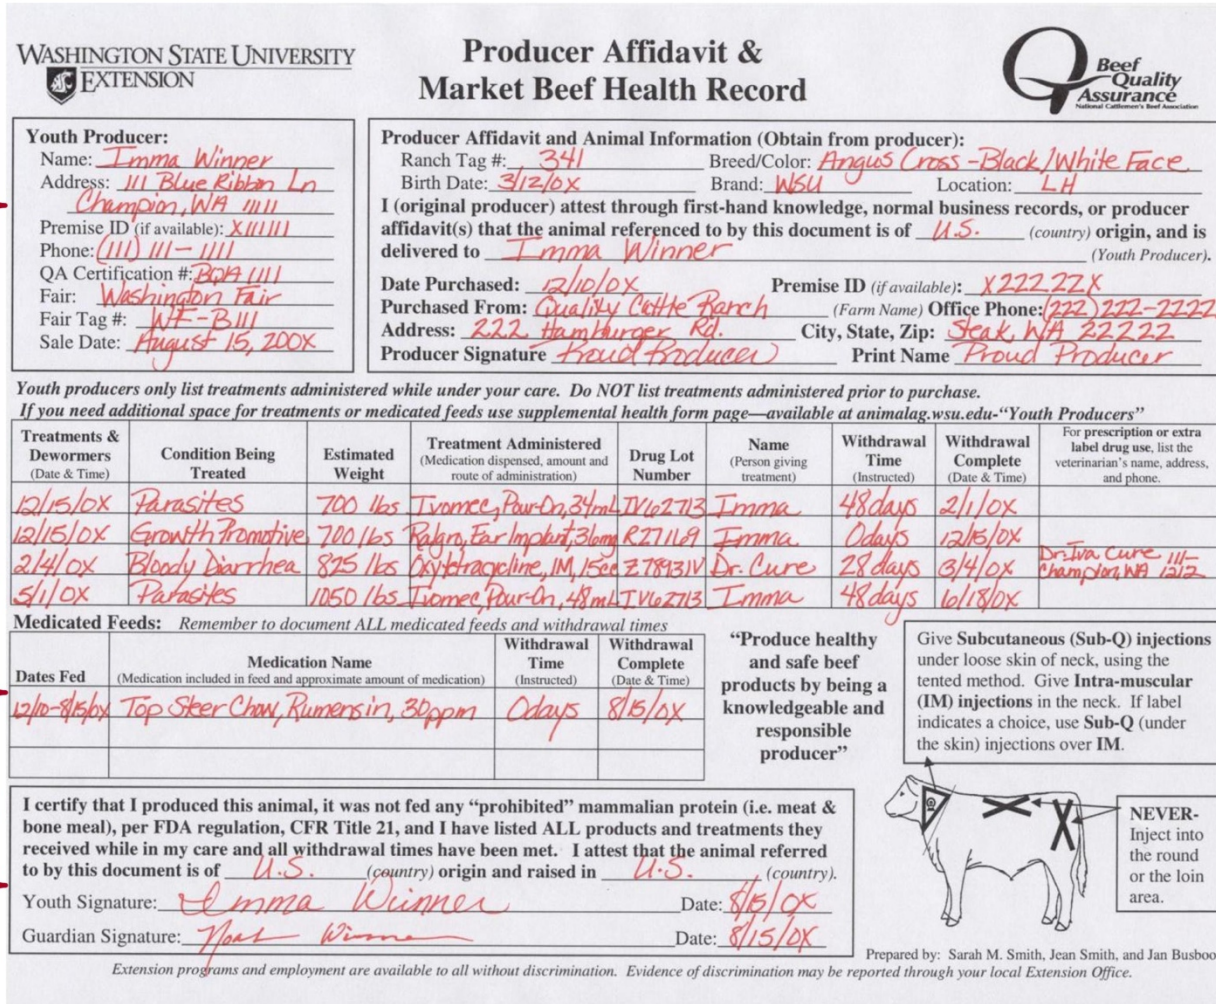 WASHINGTON STATE UNIVERSITY
EXTENSION
Producer Affidavit &
Market Beef Health Record
Beef
Quality
Assurance
National Cattlemen's Beef Association
Youth Producer:
Name: Imma Winner
Address: 111 Blue Ribbon Ln
Champion, WA 11111
Premise ID (if available): X111111
Phone: (111) 111-1111
QA Certification #: BQA 1111
Fair: Washington Fair
Fair Tag #: WF-B111
Sale Date: August 15, 200X
Producer Affidavit and Animal Information (Obtain from producer):
Ranch Tag #: 341 Breed/Color: Angus Cross-Black/White Face
Birth Date: 3/12/0X Brand: WSU Location: LH
I (original producer) attest through first-hand knowledge, normal business records, or producer
affidavit(s) that the animal referenced to by this document is of U.S. (country) origin, and is
delivered to Imma Winner (Youth Producer).
Date Purchased: 12/10/0X Premise ID (if available): X22222X
Purchased From: Quality Cattle Ranch (Farm Name) Office Phone: (222) 222-2222
Address: 222 Hamburger Rd. City, State, Zip: Steak, WA 22222
Producer Signature Proud Producer Print Name Proud Producer
Youth producers only list treatments administered while under your care. Do NOT list treatments administered prior to purchase.
If you need additional space for treatments or medicated feeds use supplemental health form page—available at animalag.wsu.edu-"Youth Producers"
Treatments & Dewormers (Date & Time) Condition Being Treated Estimated Weight Treatment Administered (Medication dispensed, amount and route of administration) Drug Lot Number Name (Person giving treatment) Withdrawal Time (Instructed) Withdrawal Complete (Date & Time) For prescription or extra label drug use, list the veterinarian's name, address, and phone.
12/15/0X Parasites 700 lbs Ivomec, Pour-On, 34mL IV62713 Imma 48days 2/1/0X
12/15/0X Growth Promotive 700 lbs Ralgro, Ear Implant, 36mg R27169 Imma 0days 12/15/0X
2/4/0X Bloody Diarrhea 825 lbs Oxytetracycline, IM, 15cc Z78931V Dr. Cure 28days 3/4/0X Dr. Iva Cure 111-
Champion, WA 1212
5/1/0X Parasites 1050 lbs Ivomec, Pour-On, 48mL IV62713 Imma 48days 6/18/0X
Medicated Feeds: Remember to document ALL medicated feeds and withdrawal times
Dates Fed Medication Name (Medication included in feed and approximate amount of medication) Withdrawal Time (Instructed) Withdrawal Complete (Date & Time)
12/10-8/15/0X Top Steer Chow, Rumensin, 30ppm 0days 8/15/0X
"Produce healthy
and safe beef
products by being a
knowledgeable and
responsible
producer"
Give Subcutaneous (Sub-Q) injections
under loose skin of neck, using the
tented method. Give Intra-muscular
(IM) injections in the neck. If label
indicates a choice, use Sub-Q (under
the skin) injections over IM.
NEVER-
Inject into
the round
or the loin
area.
I certify that I produced this animal, it was not fed any "prohibited" mammalian protein (i.e. meat &
bone meal), per FDA regulation, CFR Title 21, and I have listed ALL products and treatments they
received while in my care and all withdrawal times have been met. I attest that the animal referred
to by this document is of U.S. (country) origin and raised in U.S. (country).
Youth Signature: Imma Winner Date: 8/15/0X
Guardian Signature: Noah Winner Date: 8/15/0X
Prepared by: Sarah M. Smith, Jean Smith, and Jan Busboo
Extension programs and employment are available to all without discrimination. Evidence of discrimination may be reported through your local Extension Office.